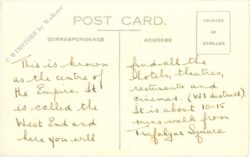 POST CARD.
CORRESPONDENCE
ADDRESS
PRINTED
IN
ENGLAND
This is known
as the centre of
the Empire. It
is called the
West End and
here you will
find all the
Hotels, theatres,
resturants and
cinemas. (W1 district).
It is about 10-15
mins walk from
Trafalgar Square